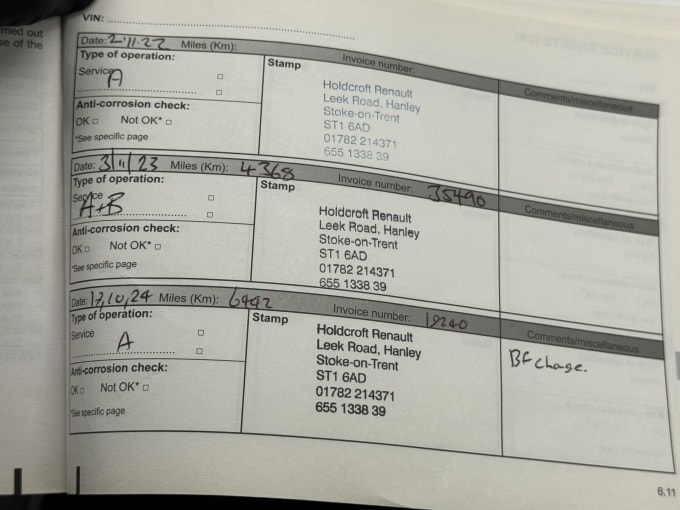 VIN:
Date: 2.11.22 Miles (Km): Invoice number:
Type of operation: Stamp Comments/miscellaneous
Service A
Anti-corrosion check:
OK Not OK*
*See specific page
Holdcroft Renault
Leek Road, Hanley
Stoke-on-Trent
ST1 6AD
01782 214371
655 1338 39
Date: 3/11/23 Miles (Km): 4368 Invoice number: 35490
Type of operation: Stamp Comments/miscellaneous
Service
A+B
Anti-corrosion check:
OK Not OK*
*See specific page
Holdcroft Renault
Leek Road, Hanley
Stoke-on-Trent
ST1 6AD
01782 214371
655 1338 39
Date: 17,10,24 Miles (Km): 6442 Invoice number: 19240
Type of operation: Stamp Comments/miscellaneous
Service
A
Anti-corrosion check:
OK Not OK*
*See specific page
Holdcroft Renault
Leek Road, Hanley
Stoke-on-Trent
ST1 6AD
01782 214371
655 1338 39
BF change.
6.11